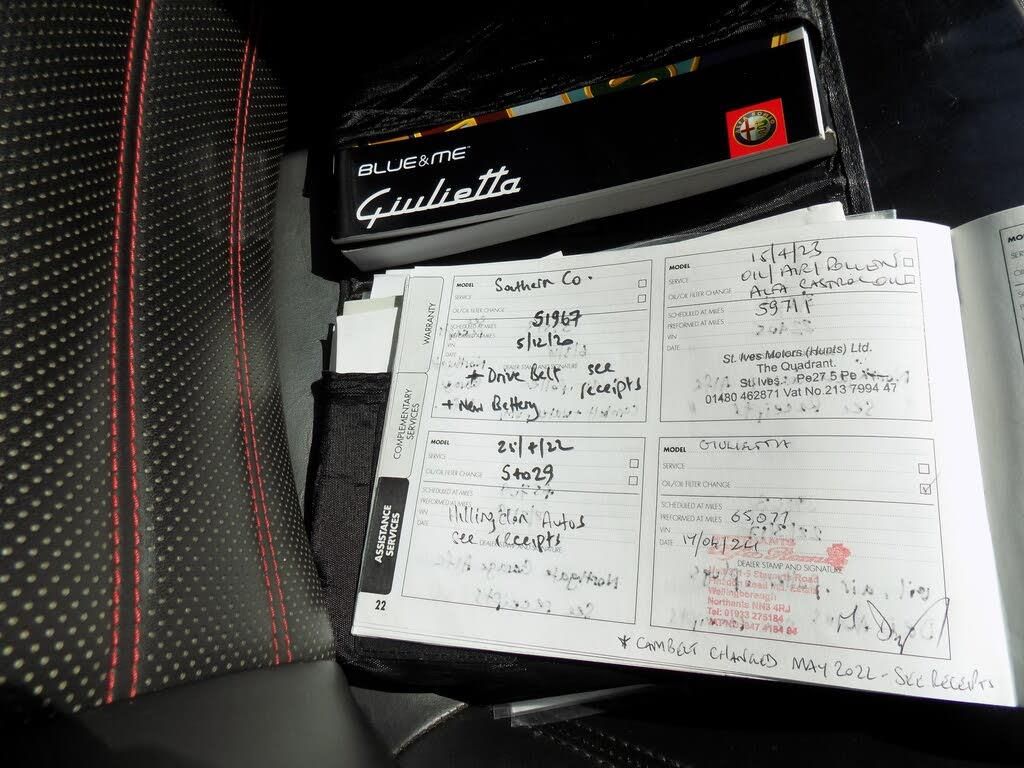 BLUE&ME™
Giulietta
ALFA ROMEO
WARRANTY
COMPLEMENTARY
SERVICES
ASSISTANCE
SERVICES
22
MODEL Southern Co.
SERVICE
OIL/OIL FILTER CHANGE
SCHEDULED AT MILES 51967
PREFORMED AT MILES
VIN 5/12/20
DATE
DEALER STAMP AND SIGNATURE
+ Drive Belt see
receipts
+ New Battery
MODEL 15/4/23
SERVICE OIL/AIR/POLLEN
OIL/OIL FILTER CHANGE ALFA CASTROL
SCHEDULED AT MILES 59711
PREFORMED AT MILES
VIN
DATE
St. Ives Motors (Hunts) Ltd.
The Quadrant.
St. Ives. Pe27 5 Pe
01480 462871 Vat No.213 7994 47
MODEL 25/7/22
SERVICE
OIL/OIL FILTER CHANGE 57029
SCHEDULED AT MILES
PREFORMED AT MILES
VIN Hillingdon Autos
DATE see receipts
DEALER STAMP AND SIGNATURE
MODEL GIULIETTA
SERVICE
OIL/OIL FILTER CHANGE
SCHEDULED AT MILES
PREFORMED AT MILES 65,077
VIN
DATE 17/04/24
DEALER STAMP AND SIGNATURE
Road
Wellingborough
Northants NN8 4RJ
Tel: 01933 275184
* CAMBELT CHANGED MAY 2022 - SEE RECEIPTS